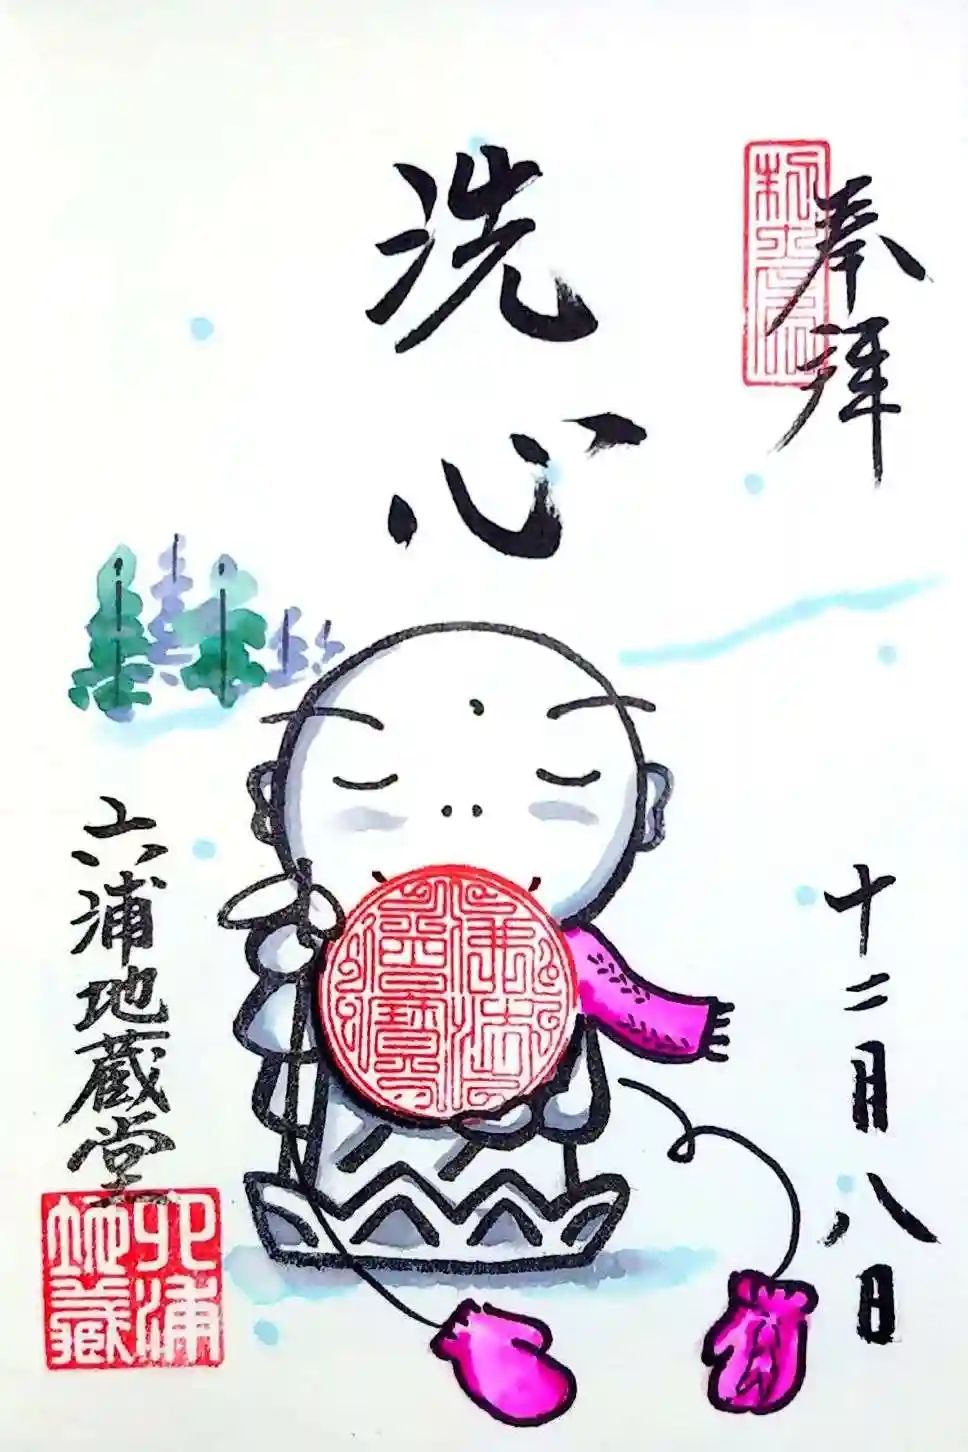 奉拝
十二月八日
洗心
六浦地蔵堂
六浦
地蔵